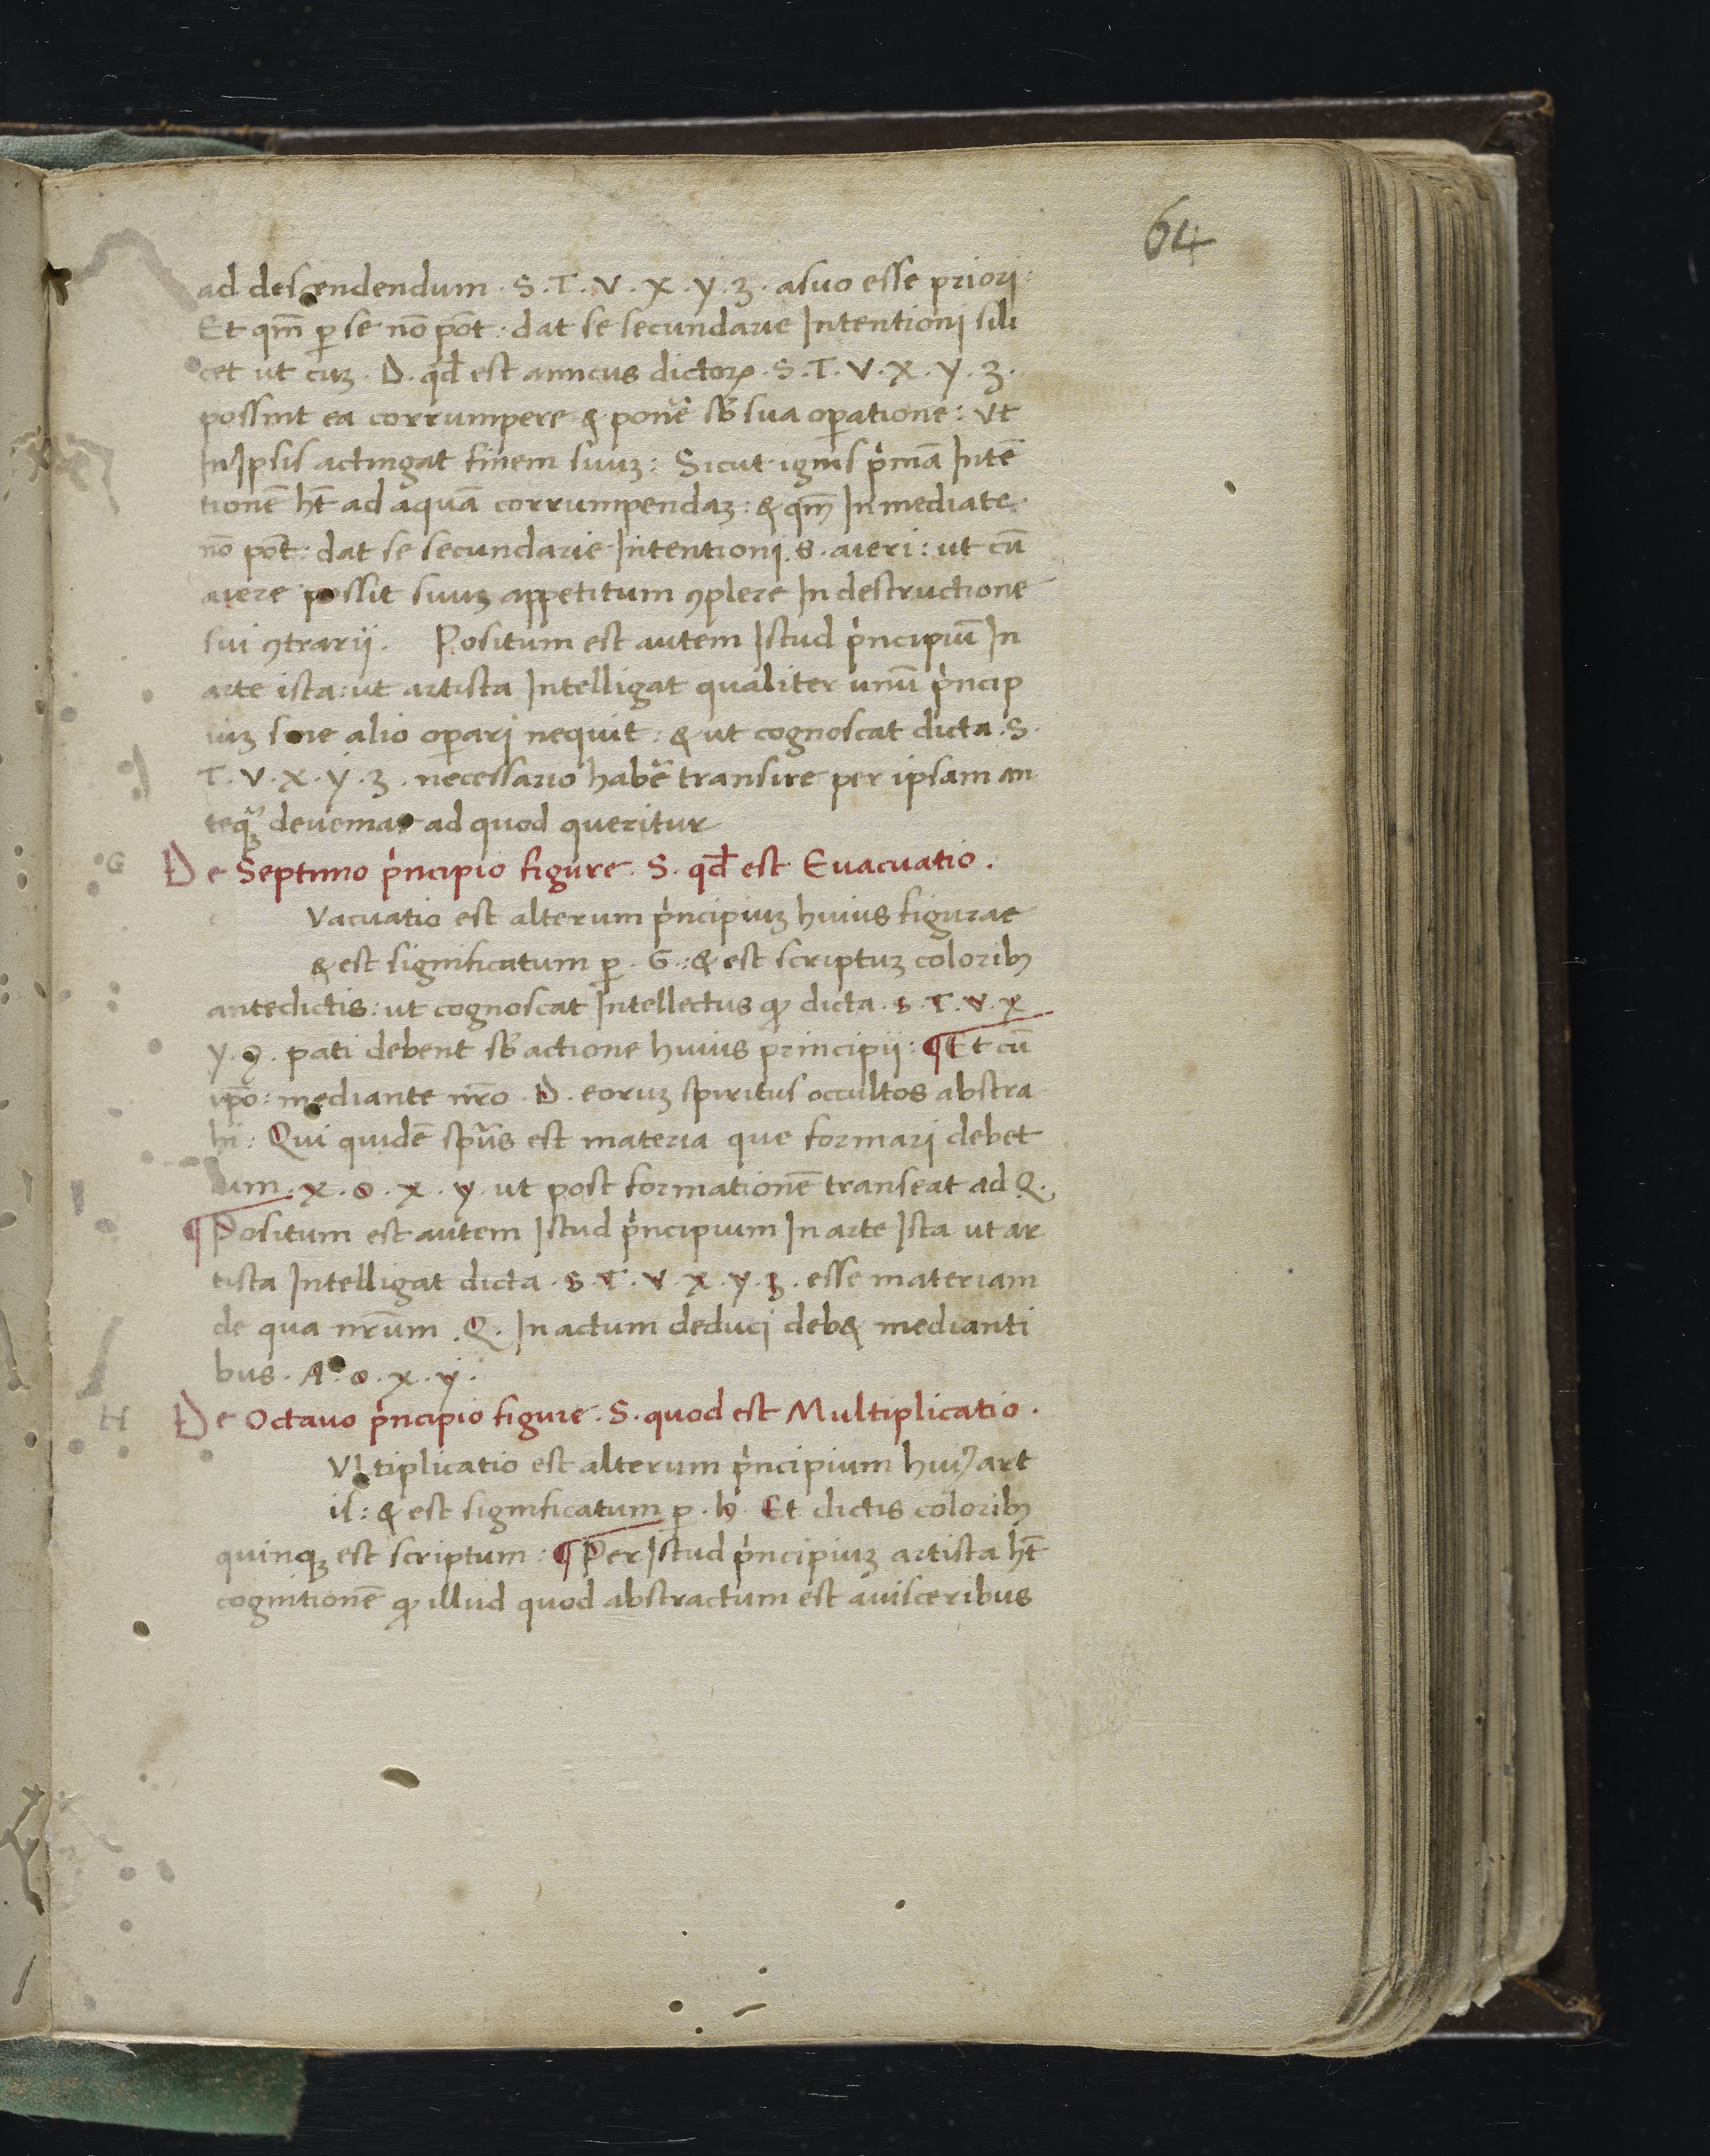 64
ad descendendum · S · T · V · X · y · ʒ · asuo esse priori:
Et qm̄ ꝑ se nō pōt : dat se secundarie Intentioni sili
cet ut cuʒ · D · qđ est amicus dictoꝝ · S · T · V · X · y · ʒ ·
possint ea corrumpere & ponẽ sƀ sua oꝑatione : Ut
In Ipsis actingat finem suuʒ : Sicut ignis pͥmā Intē
tionē ħt ad aquā corrumpendaʒ : & qm̄ Inmediate
nō pōt : dat se secundarie Intentioni . S . aieri : ut cū
aiere possit suuʒ appetitum ꝯplere In destructione
sui ꝯtrarij . Positum est autem Istud pͥncipiū In
arte ista : ut artista Intelligat qualiter unū pͥncip
iuʒ sine alio oꝑari nequit : & ut cognoscat dicta . S .
T · V · X · y · ʒ . necessario habẽ transire per ipsam an
ad quod queritur
De Septimo pͥncipio figure . S . qđ est Euacuatio .
G
Vacuatio est alterum pͥncipiuʒ huius figurae
& est significatum ꝑ . G . : & est scriptuʒ coloribꝫ
antedictis : ut cognoscat Intellectus ꝙ dicta . S . T . V . X
y . ʒ . pati debent sƀ actione huius principii : ¶ Et cū
ipō : mediante nr̄o . D . eoruʒ spiritus occultos abstra
hi : Qui quidē spūs est materia que formari debet
cum . X . o . X . y . ut post formationē transeat ad Q .
¶ Positum est autem Istud pͥncipium In arte Ista ut ar
tista Intelligat dicta . S . T . V . X . y . ʒ . esse materiam
de qua nr̄um . Q . In actum deduci deb& medianti
bus . A . o . X . y .
De Octauo pͥncipio figure . S . quod est Multiplicatio .
H
Vltiplicatio est alterum pͥncipium huiꝰ art
is : & est significatum ꝑ . h . Et dictis coloribꝫ
quinqꝫ est scriptum : ¶ Per Istud pͥncipiuʒ artista ħt
cognitionē ꝙ illud quod abstractum est auisceribus